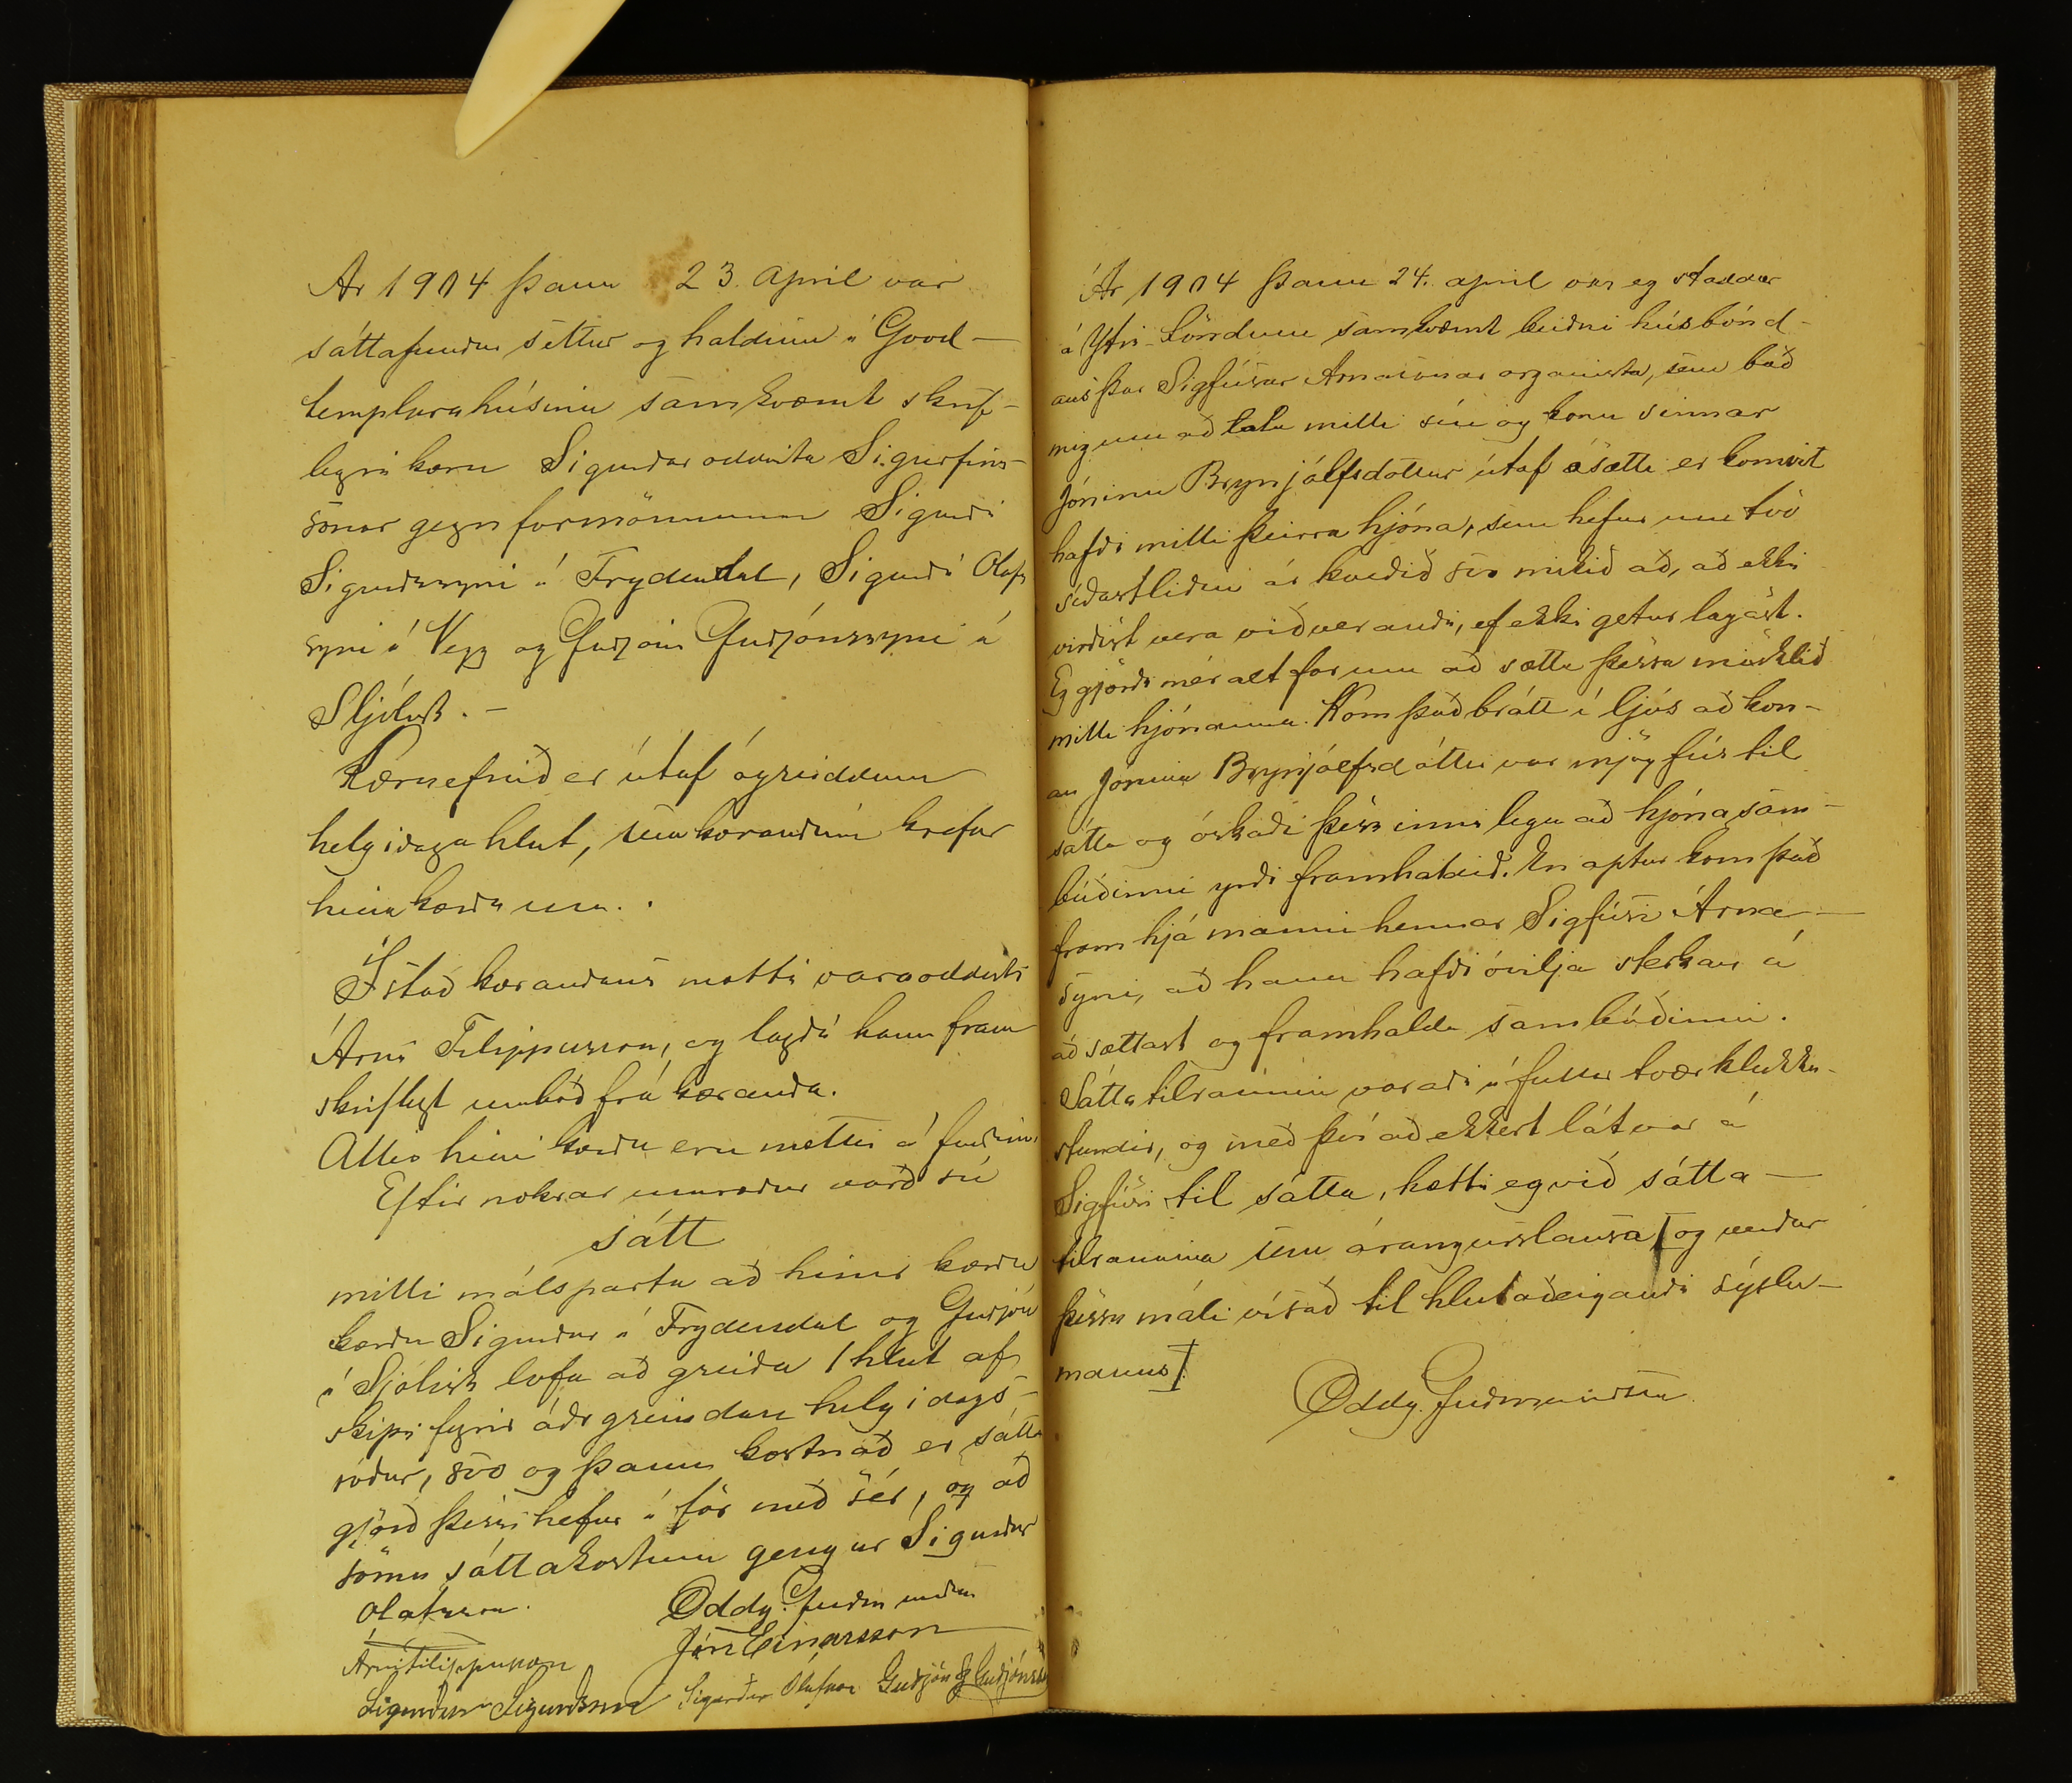 Ár 1904 þann 23. apríl var
sáttafundur settur og haldinn í Good-
templarahúsinu samkvæmt skrif-
legri kæru Sigurðar oddvita Sigurfins-
sonar gegn formönnunum Sigurði
Sigurðssyni í Frydendal, Sigurði Ólafs
syni í Vegg og Guðjóni Guðjónssyni á
Sljólyst. -
Kæruefnið er útaf ógreiddum
helgidagahlut, sem kærandinn krefur
hina kærðu um.
Í stað kærandans mætti varaoddviti
Árni Filippusson, og lagði hann fram
skriflegt umboð frá kæranda.
Allir hinir kærðu eru mættir á fundinum
Eftir nokrar umræður varð sú
sátt
milli málsparta að hinir kærðu
kærðu Sigurður í Frydendal og Guðjón
á Sjólyst lofa að greiða 1 hlut af
skipi fyrir áðr greindan helgidags-
róður, svo og þann kostnað er sátta
gjörð þessi hefur í för með sér, og að
sömu sáttakostum gengur Sigurður
Ólafsson.
Oddg. Guðmundsen
Jón Einarsson
Árni Filippusson
Sigurður Sigurðsson Sigurður Ólafsson Guðjón Guðjónsson
Ár 1904 þann 24. apríl var eg staddur
á Ytri-Löndum samkvæmt beiðni húsbónd-
ans þar Sigfúsar Árnasonar organista, sem bað
mig um að tala milli sín og konu sinnar
Jónínu Brynjólfsdóttur útaf ósætti er komist
hafði milli þeirra hjóna, sem hefur um tvö
síðastliðin ár kveðið svo mikið að, að ekki
virðist vera við verandi, ef ekki getur lagast.
Eg gjörði mér alt far um að sætta þessa misklíð
milli hjónanna. Kom það brátt í ljós að kon-
an Jónína Brynjólfsdóttir var mjög fús til
sátta og óskaði þess innilega að hjónasam-
búðinni yrði framhaldið. En aptur kom það
fram hjá manni hennar Sigfúsi Árna-
syni, að hann hafði óvilja sterkan á
að sættast og framhalda sambúðinni.
Sáttatilraunin varaði í fullar tvær klukku-
stundir, og með því að ekkert lát var á
Sigfúsi til sátta, hætti eg við sátta-
tilraunina sem árangurslausa og verður
þessu máli vísað til hlutaðeigandi sýslu-
manns.
Oddg. Guðmundsen